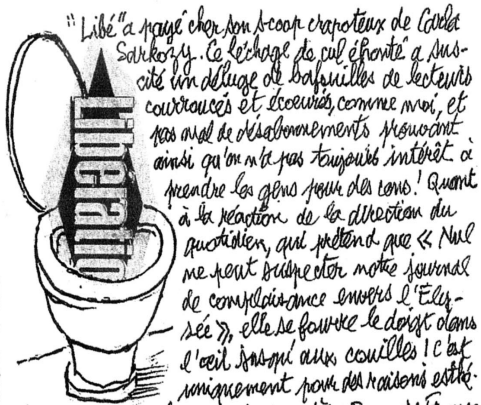 "Libé" a payé cher son scoop crapoteux de Carla
Sarkozy. Ce léchage de cul éhonté a sus-
cité un déluge de bafouilles de lecteurs
courroucés et écoeurés, comme moi, et
pas mal de désabonnements prouvant
ainsi qu'on n'a pas toujours intérêt à
prendre les gens pour des cons! Quant
à la réaction de la direction du
quotidien, qui prétend que « Nul
ne peut suspecter notre journal
de complaisance envers l'Ély-
sée », elle se fourre le doigt dans
l'œil jusqu'aux couilles! C'est
uniquement pour des raisons esthé-
Libération